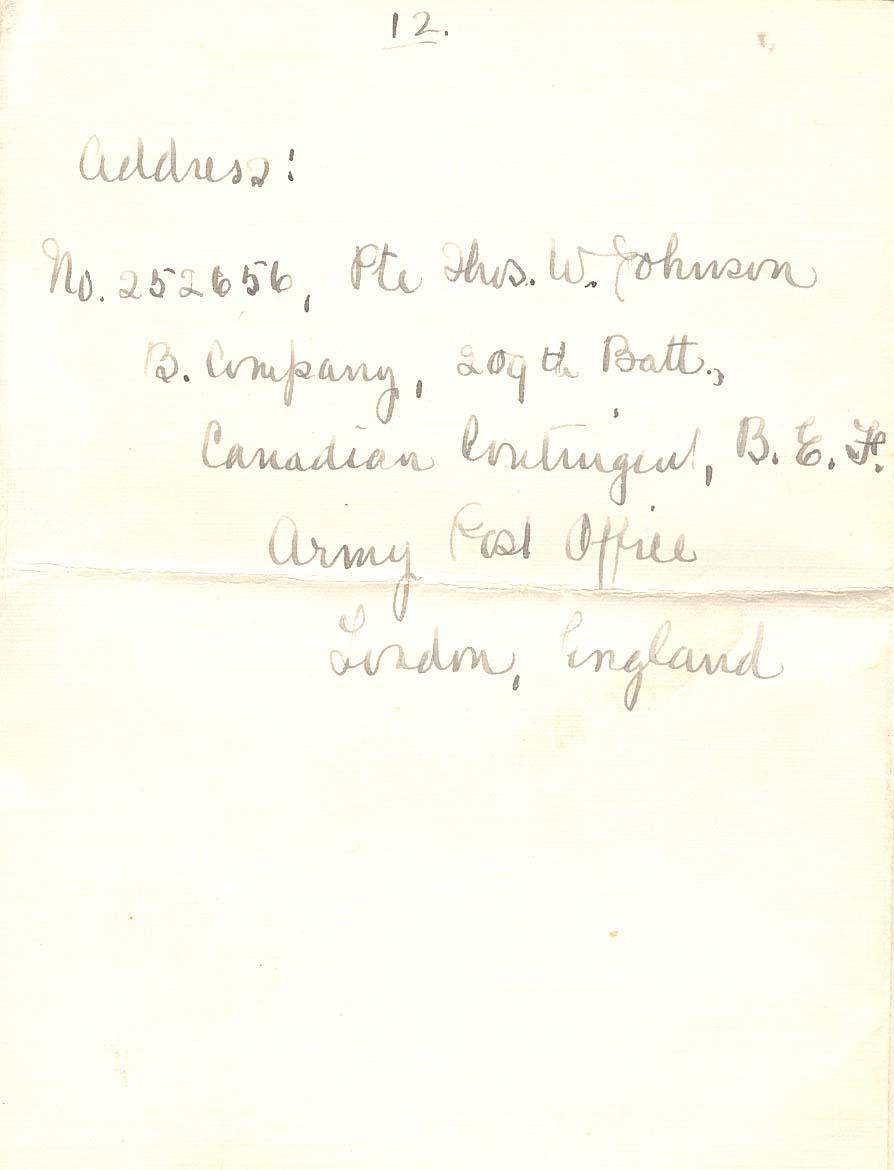 12.
Address:
No. 252656, Pte Thos. W. Johnson
B. Company, 209th Batt.,
Canadian Contingent, B. E. F.
Army Post Office
London, England